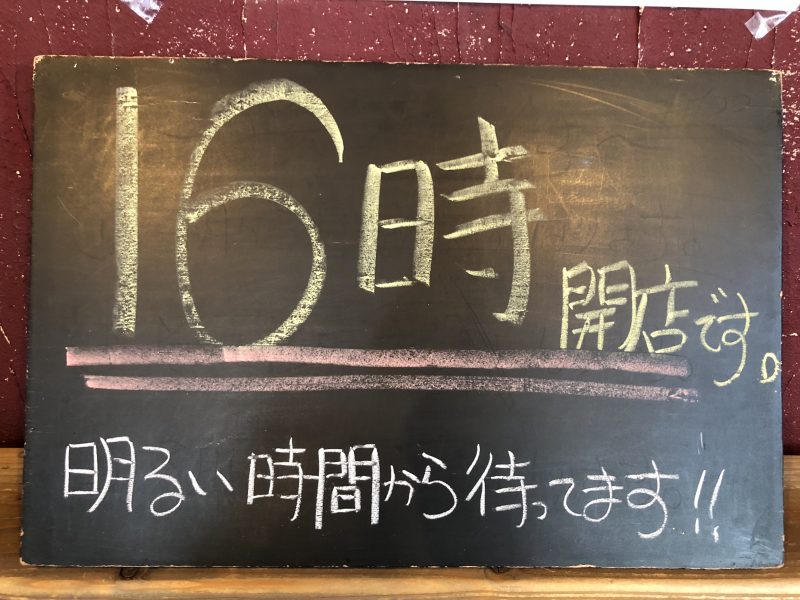 16時開店です。
明るい時間から待ってます!!